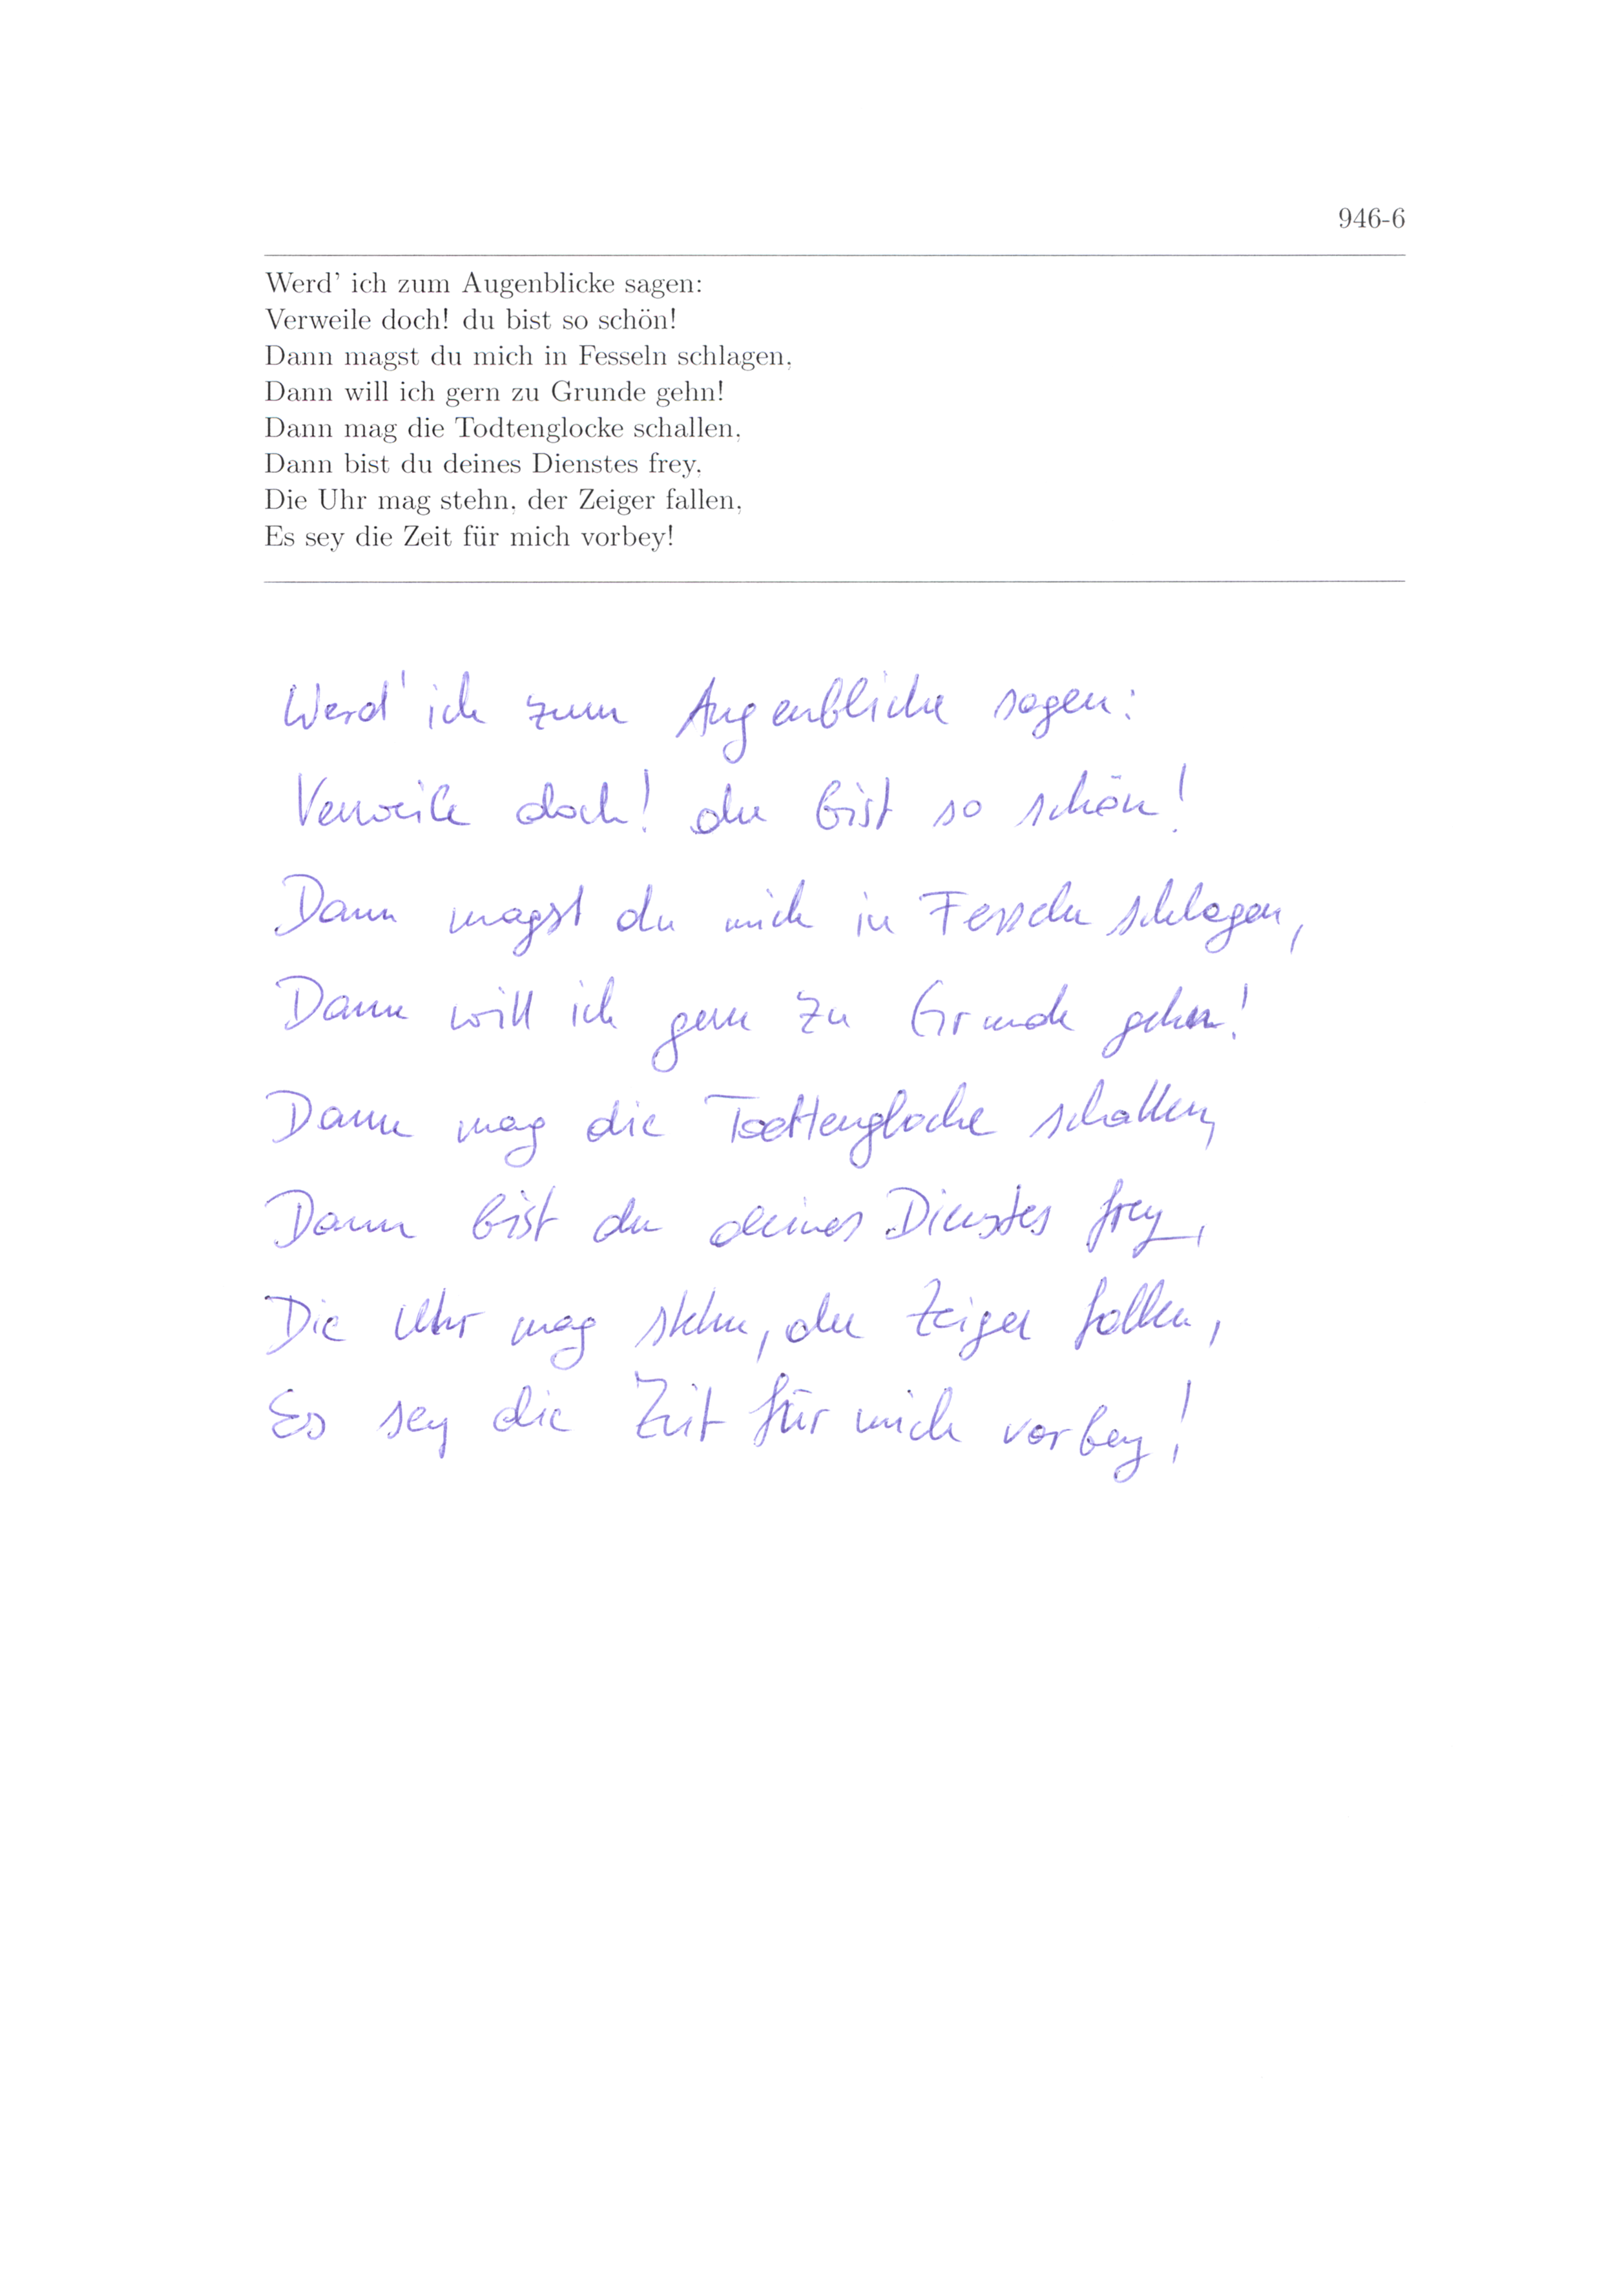 946-6
Werd' ich zum Augenblicke sagen:
Verweile doch! du bist so schön!
Dann magst du mich in Fesseln schlagen,
Dann will ich gern zu Grunde gehn!
Dann mag die Todtenglocke schallen,
Dann bist du deines Dienstes frey,
Die Uhr mag stehn, der Zeiger fallen,
Es sey die Zeit für mich vorbey!
Werd' ich zum Augenblicke sagen:
Verweile doch! du bist so schön!
Dann magst du mich in Fesseln schlagen,
Dann will ich gern zu Grunde gehn!
Dann mag die Todtenglocke schallen,
Dann bist du deines Dienstes frey,
Die Uhr mag stehn, der Zeiger fallen,
Es sey die Zeit für mich vorbey!